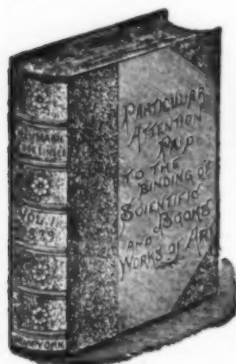 VOL. 1.
879
NEW YORK
PARTICULAR
ATTENTION
PAID
TO THE
BINDING OF
SCIENTIFIC
BOOKS
AND
WORKS OF ART